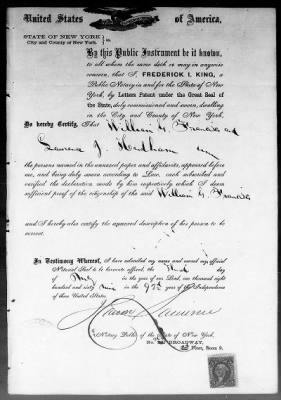 United States of America,
STATE OF NEW YORK
City and County of New York. ss.
By this Public Instrument be it known,
to all whom the same doth or may in anywise
concern, that I, FREDERICK I. KING, a
Public Notary in and for the State of New
York, by Letters Patent under the Great Seal of
the State, duly commissioned and sworn, dwelling
in the City and County of New York.
Do hereby Certify, That William G.
J.
the persons named in the annexed paper and affidavits, appeared before
me, and being duly sworn according to Law, each subscribed and
verified the declaration made by him respectively which I deem
sufficient proof of the citizenship of the said William G.
and I hereby also certify the annexed description of his person to be
correct.
In Testimony Whereof, I have subscribed my name and caused my official
Notarial Seal to be hereunto affixed, the day
of in the year of our Lord, one thousand eight
hundred and sixty nine in the 93d year of the Independence
of these United States.
Notary Public of the State of New York.
No. BROADWAY,
Floor, Room 9.